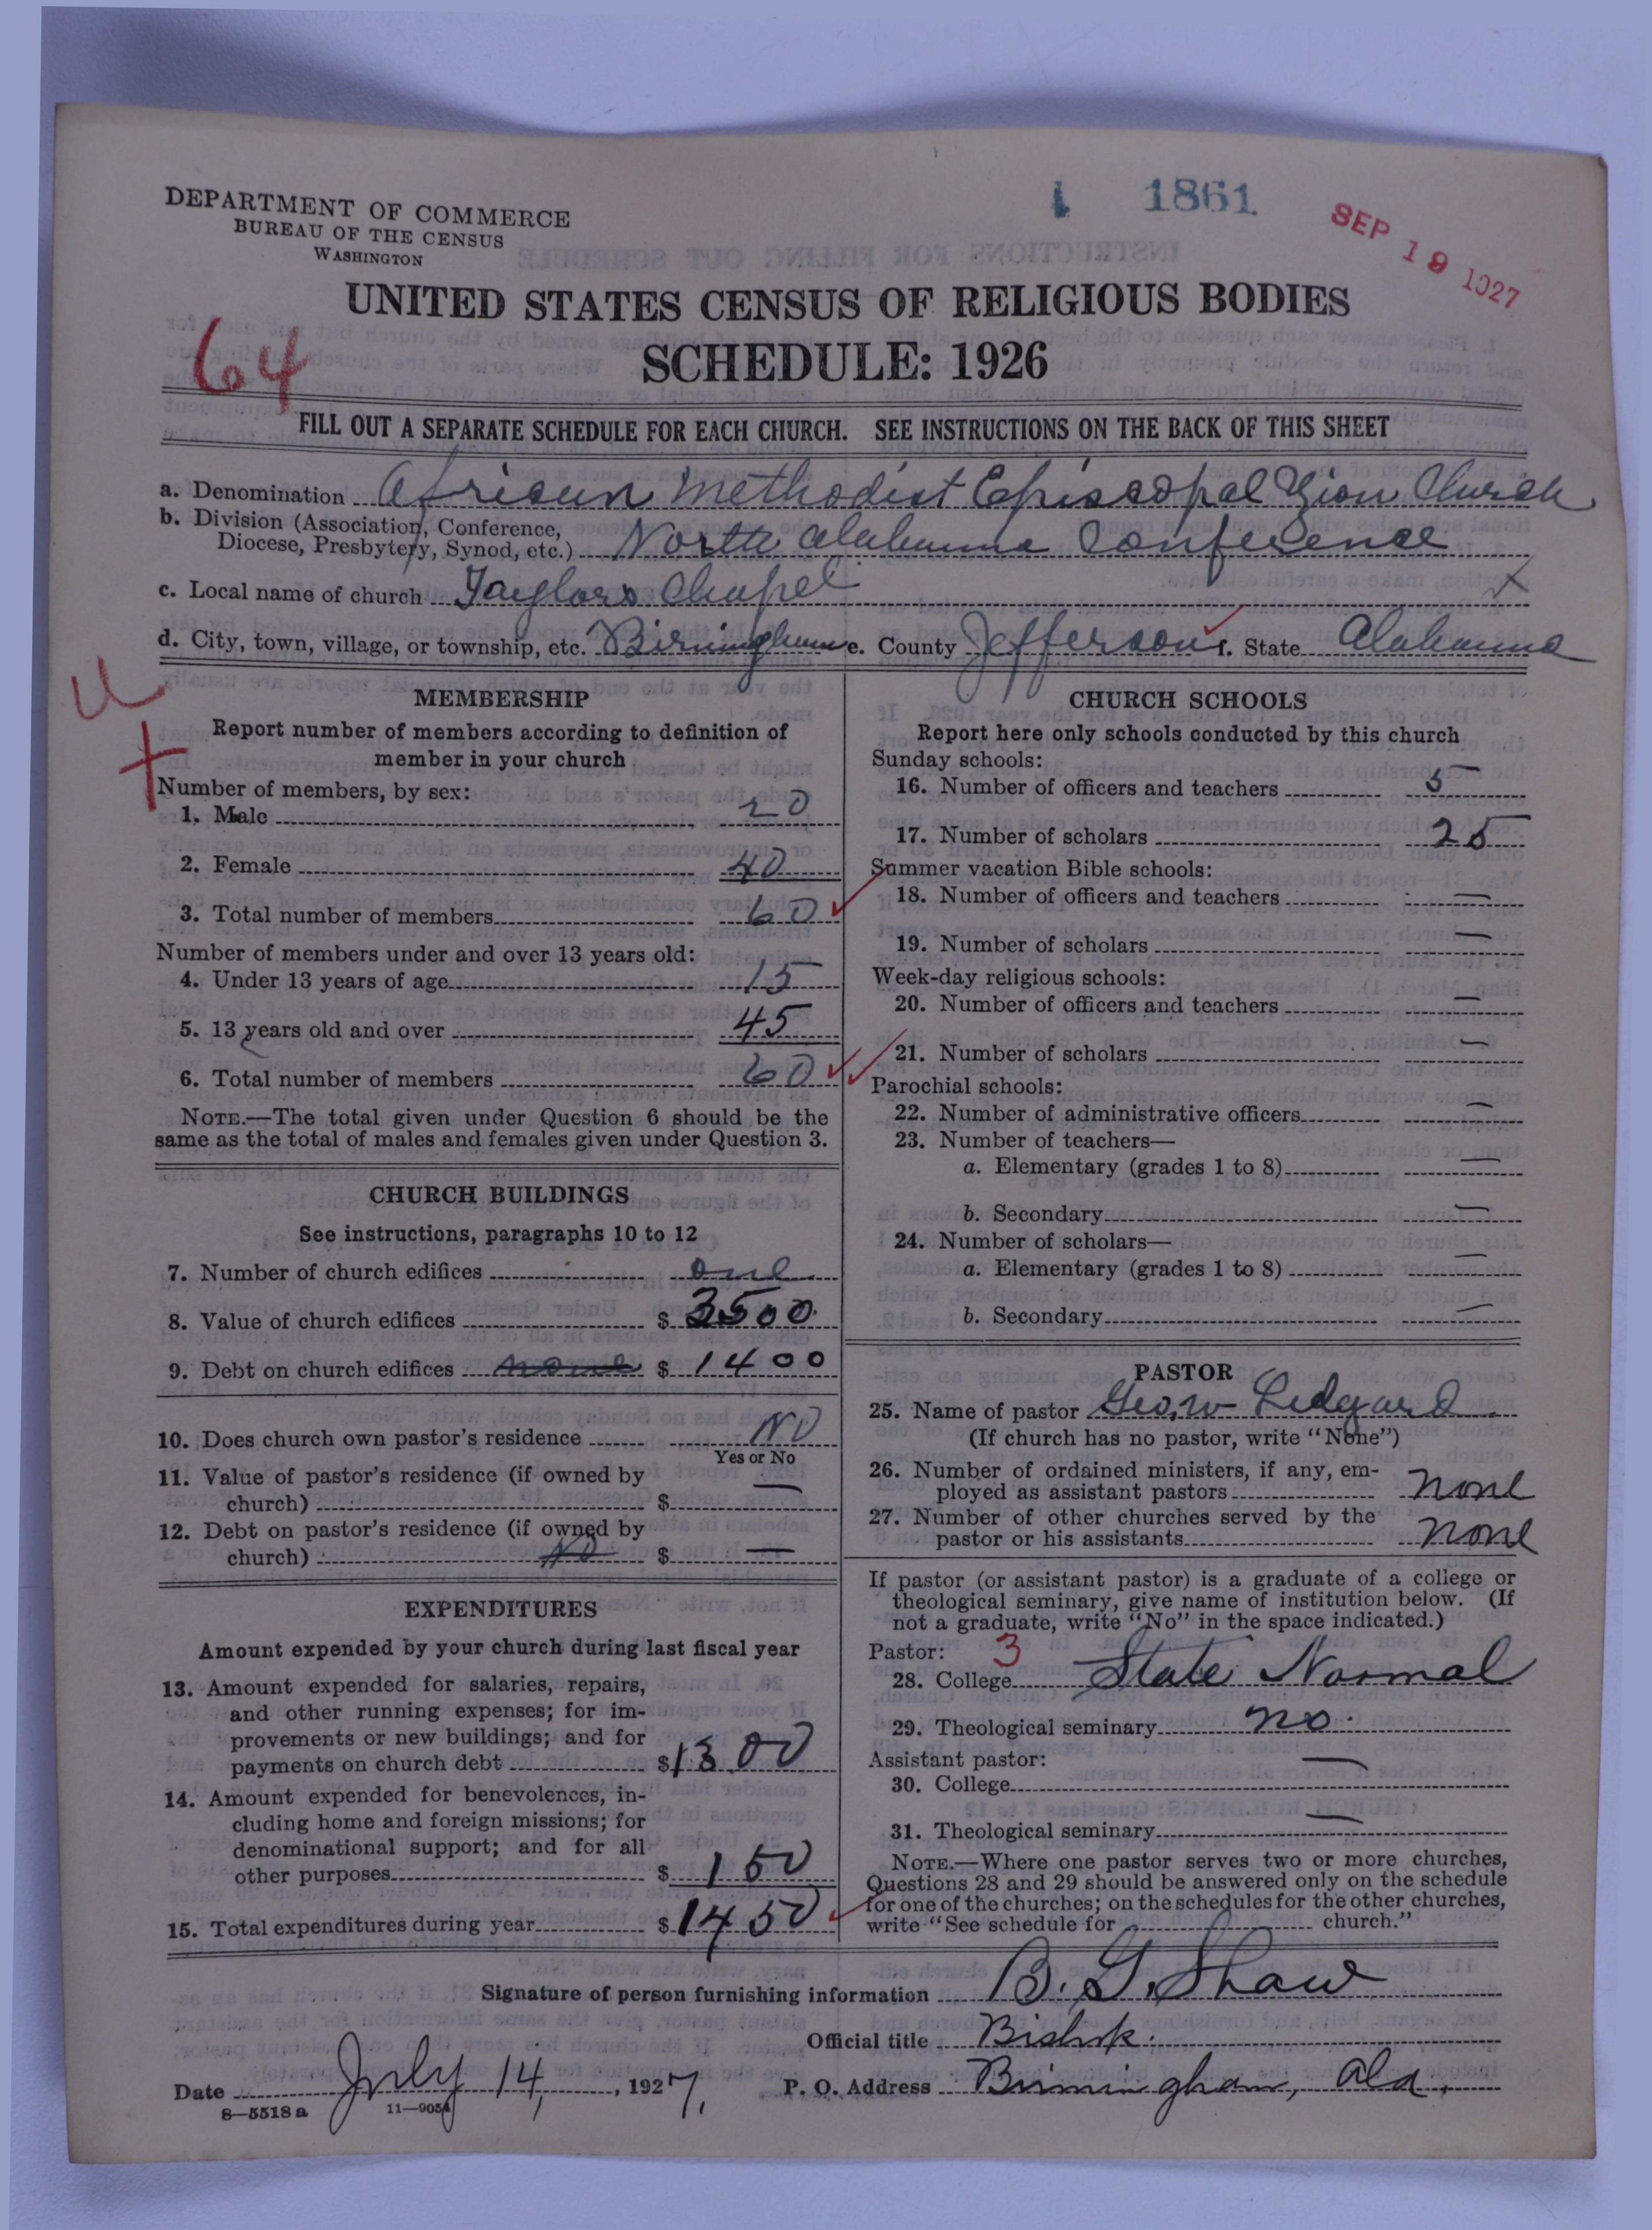 DEPARTMENT OF COMMERCE
BUREAU OF THE CENSUS
WASHINGTON
1 1861
SEP 19 1927
UNITED STATES CENSUS OF RELIGIOUS BODIES
SCHEDULE: 1926
64
FILL OUT A SEPARATE SCHEDULE FOR EACH CHURCH. SEE INSTRUCTIONS ON THE BACK OF THIS SHEET
a. Denomination African Methodist Episcopal Zion Church
b. Division (Association, Conference,
Diocese, Presbytery, Synod, etc.) North Alabama Conference
c. Local name of church Taylors Chapel
d. City, town, village, or township, etc. Birmingham e. County Jefferson f. State Alabama
MEMBERSHIP
Report number of members according to definition of
member in your church
Number of members, by sex:
1. Male 20
2. Female 40
3. Total number of members 60
Number of members under and over 13 years old:
4. Under 13 years of age 15
5. 13 years old and over 45
6. Total number of members 60
NOTE.—The total given under Question 6 should be the
same as the total of males and females given under Question 3.
CHURCH BUILDINGS
See instructions, paragraphs 10 to 12
7. Number of church edifices one
8. Value of church edifices $ 3500
9. Debt on church edifices none $ 1400
10. Does church own pastor's residence NO
Yes or No
11. Value of pastor's residence (if owned by
church) $ —
12. Debt on pastor's residence (if owned by
church) No $ —
EXPENDITURES
Amount expended by your church during last fiscal year
13. Amount expended for salaries, repairs,
and other running expenses; for im-
provements or new buildings; and for
payments on church debt $ 1300
14. Amount expended for benevolences, in-
cluding home and foreign missions; for
denominational support; and for all
other purposes $ 150
15. Total expenditures during year $ 1450
CHURCH SCHOOLS
Report here only schools conducted by this church
Sunday schools:
16. Number of officers and teachers 5
17. Number of scholars 25
Summer vacation Bible schools:
18. Number of officers and teachers —
19. Number of scholars —
Week-day religious schools:
20. Number of officers and teachers —
21. Number of scholars —
Parochial schools:
22. Number of administrative officers —
23. Number of teachers—
a. Elementary (grades 1 to 8) —
b. Secondary —
24. Number of scholars—
a. Elementary (grades 1 to 8) —
b. Secondary —
PASTOR
25. Name of pastor Geo. W Ledyard
(If church has no pastor, write "None")
26. Number of ordained ministers, if any, em-
ployed as assistant pastors none
27. Number of other churches served by the
pastor or his assistants none
If pastor (or assistant pastor) is a graduate of a college or
theological seminary, give name of institution below. (If
not a graduate, write "No" in the space indicated.)
Pastor: 3
28. College State Normal
29. Theological seminary no.
Assistant pastor:
30. College —
31. Theological seminary —
NOTE.—Where one pastor serves two or more churches,
Questions 28 and 29 should be answered only on the schedule
for one of the churches; on the schedules for the other churches,
write "See schedule for church."
Signature of person furnishing information B. G. Shaw
Official title Bishop.
Date July 14, 1927. P. O. Address Birmingham, Ala.
8—5518 a 11—9051